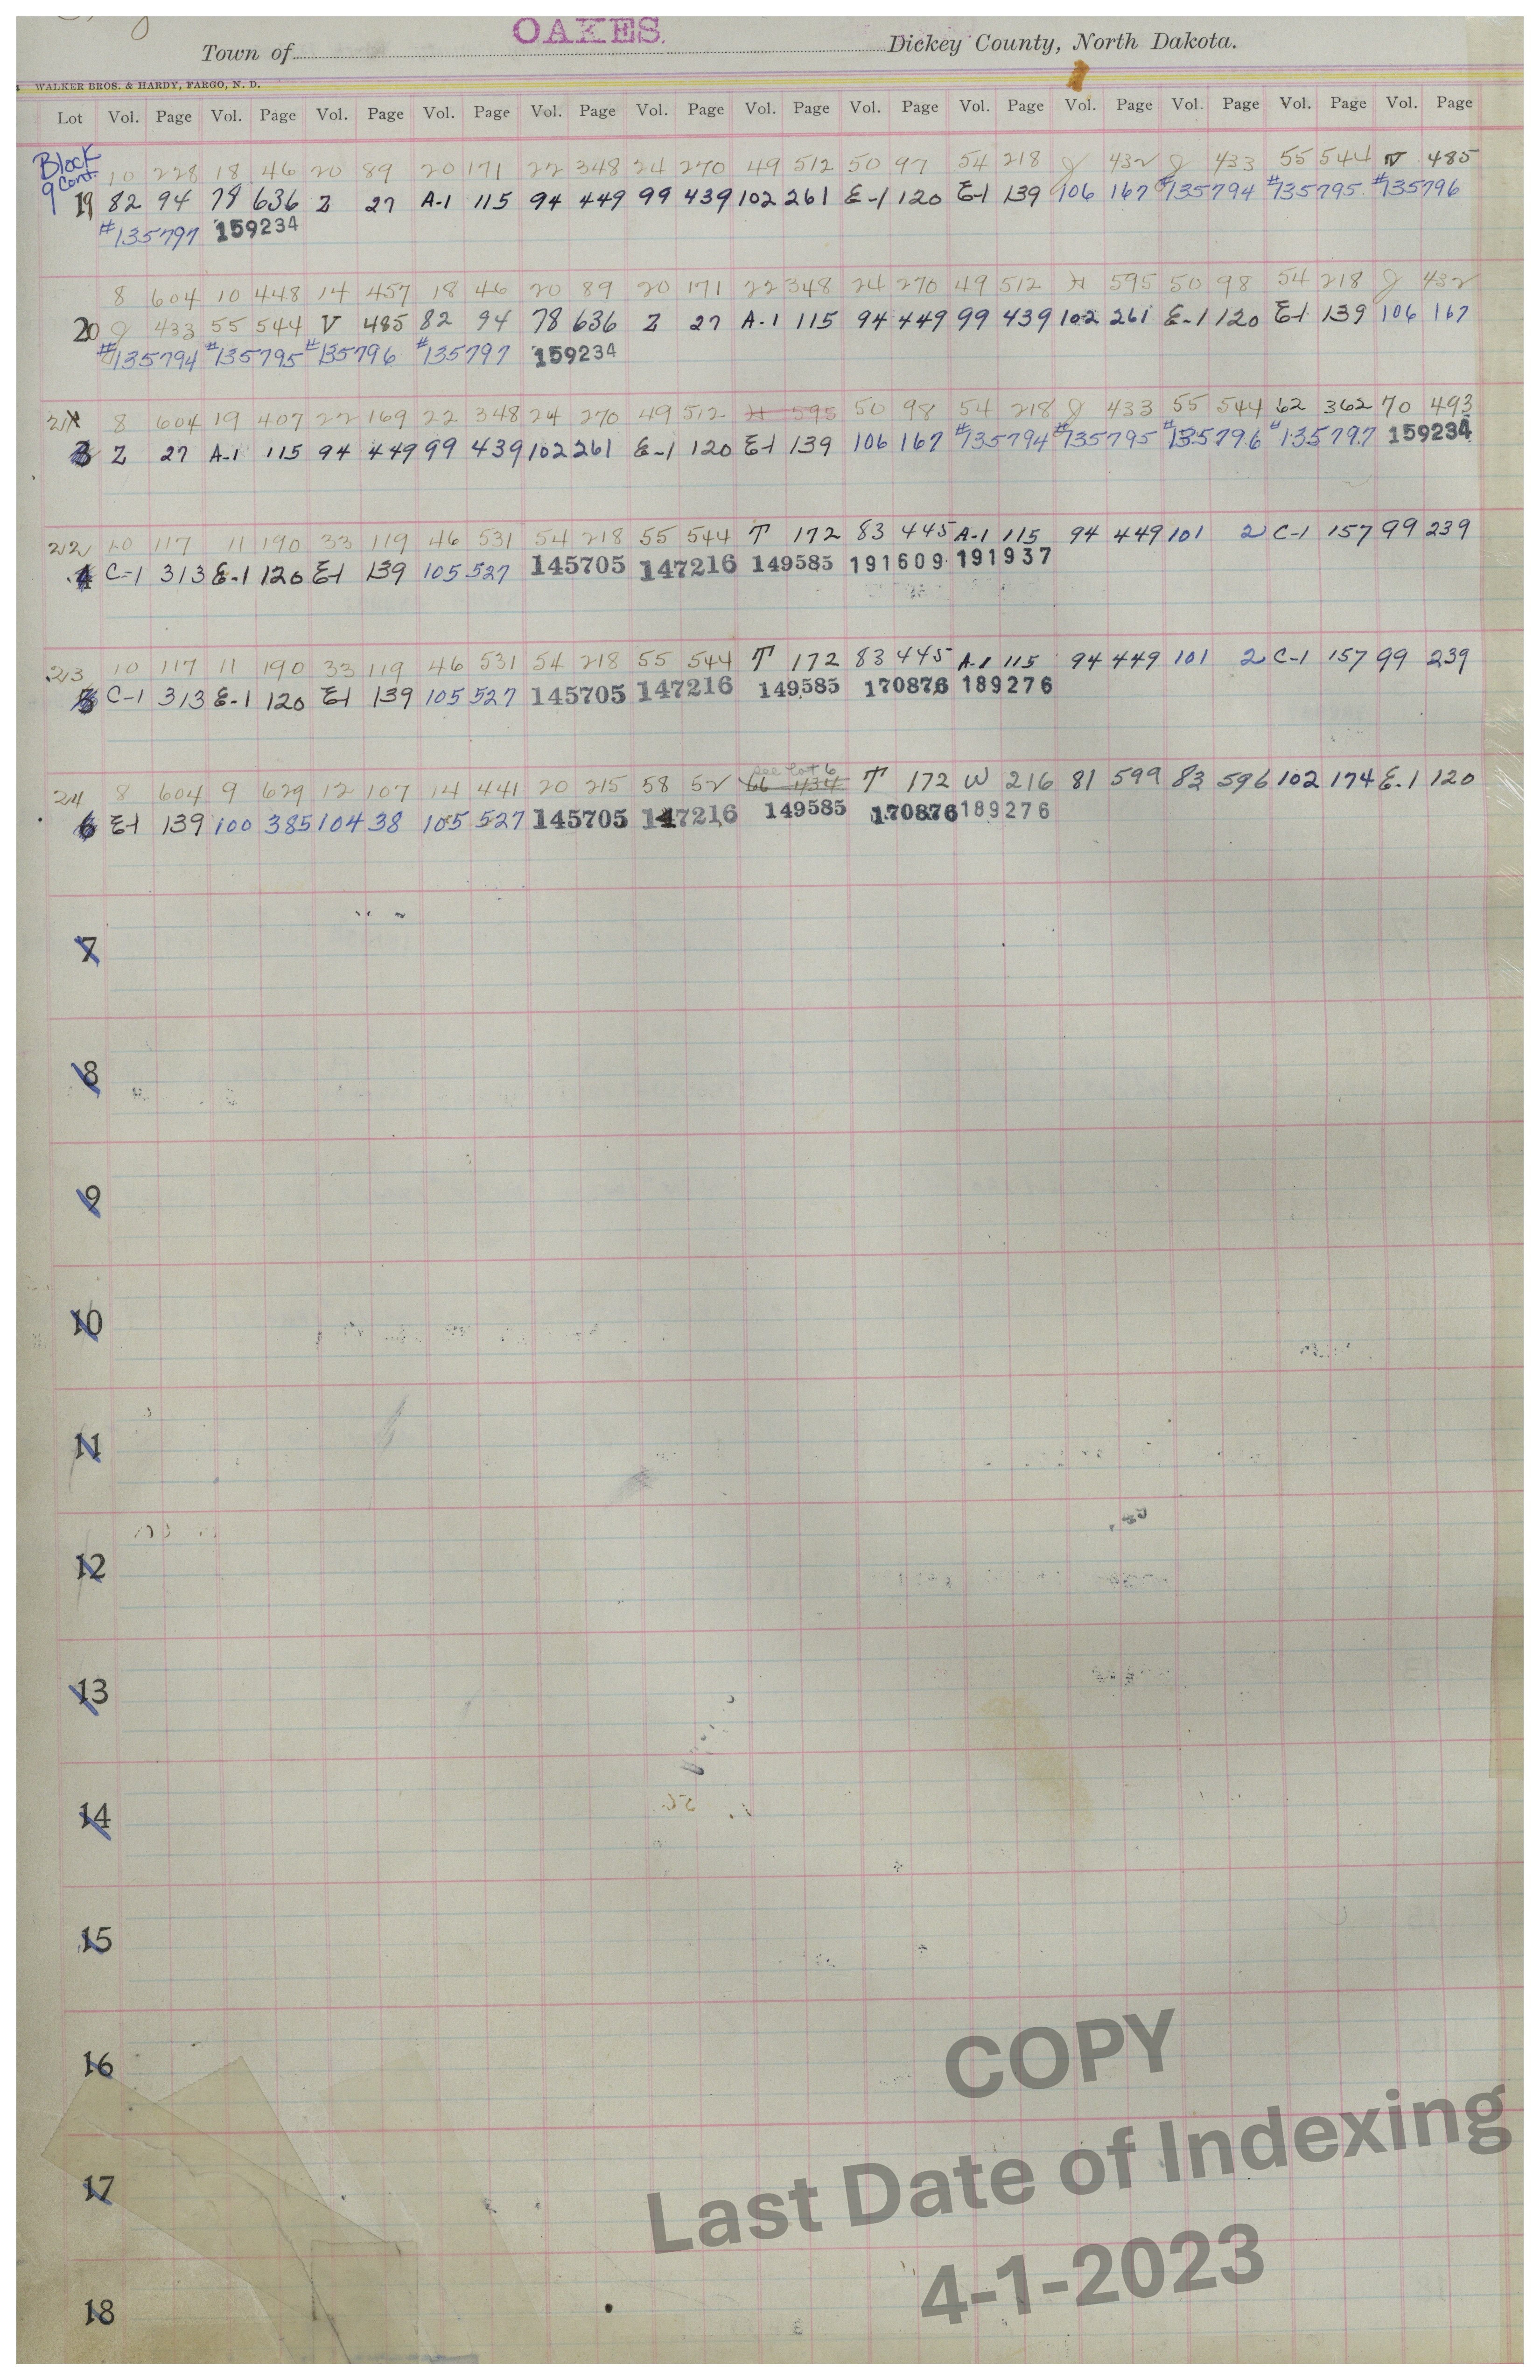 OAKES.
Town of Dickey County, North Dakota.
WALKER BROS. & HARDY, FARGO, N. D.
Lot Vol. Page Vol. Page Vol. Page Vol. Page Vol. Page Vol. Page Vol. Page Vol. Page Vol. Page Vol. Page Vol. Page Vol. Page Vol. Page
Block
9 Cont.
10 228 18 46 20 89 20 171 22 348 24 270 49 512 50 97 54 218 J 432 J 433 55 544 V 485
19 82 94 78 636 Z 27 A-1 115 94 449 99 439 102 261 E-1 120 E-1 139 106 167 #135794 #135795 #135796
#135797 159234
8 604 10 448 14 457 18 46 20 89 20 171 22 348 24 270 49 512 H 595 50 98 54 218 J 432
20 J 433 55 544 V 485 82 94 78 636 Z 27 A-1 115 94 449 99 439 102 261 E-1 120 E-1 139 106 167
#135794 #135795 #135796 #135797 159234
21 8 604 19 407 22 169 22 348 24 270 49 512 H 595 50 98 54 218 J 433 55 544 62 362 70 493
3 Z 27 A-1 115 94 449 99 439 102 261 E-1 120 E-1 139 106 167 #135794 #135795 #135796 #135797 159234
22 10 117 11 190 33 119 46 531 54 218 55 544 T 172 83 445 A-1 115 94 449 101 2 C-1 157 99 239
4 C-1 313 E-1 120 E-1 139 105 527 145705 147216 149585 191609 191937
23 10 117 11 190 33 119 46 531 54 218 55 544 T 172 83 445 A-1 115 94 449 101 2 C-1 157 99 239
5 C-1 313 E-1 120 E-1 139 105 527 145705 147216 149585 170876 189276
see Lot 6
24 8 604 9 629 12 107 14 441 20 215 58 52 66 434 T 172 W 216 81 599 83 596 102 174 E-1 120
6 E-1 139 100 385 104 38 105 527 145705 147216 149585 170876 189276
7
8
9
10
11
12
13
14
15
16
17
18
COPY
Last Date of Indexing
4-1-2023